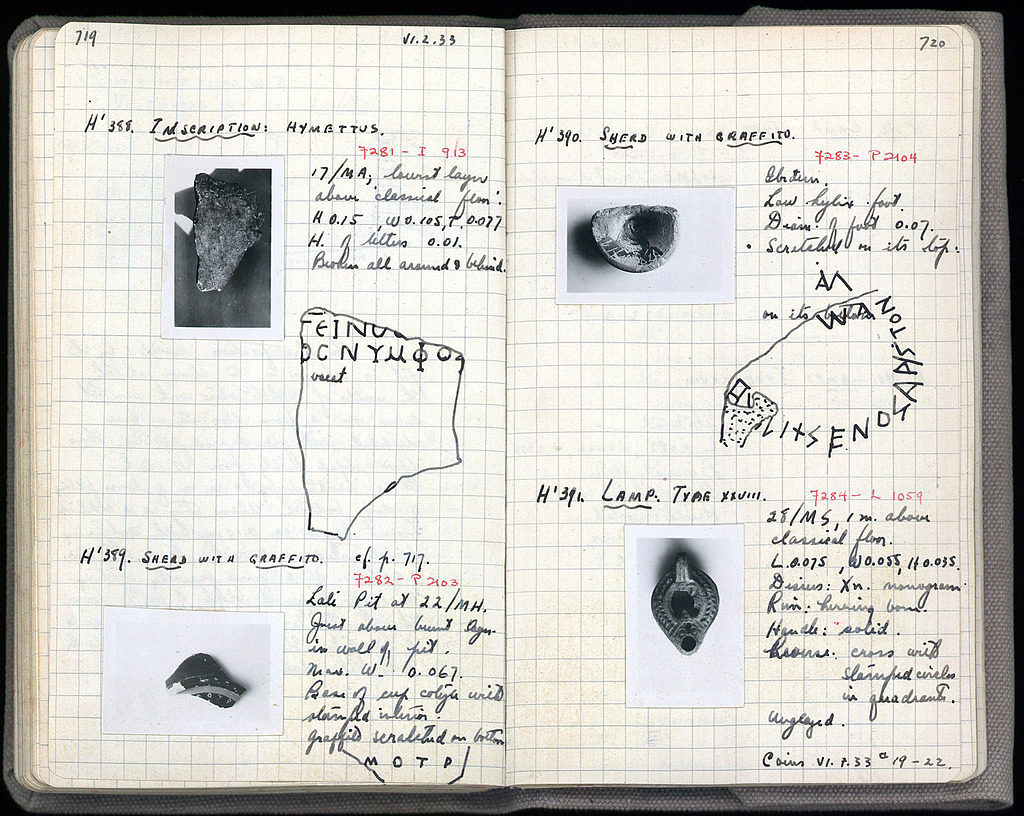 719
VI.2.33
H'388. INSCRIPTION: HYMETTUS.
7281 - I 913
17/MA; lowest layer
above 'classical floor'.
H 0.15, W 0.105, T. 0.077
H. of letters 0.01.
Broken all around & behind.
ΕΙΝ
ΟϹ ΝΥΜΦΟ
vacat
H'389. SHERD WITH GRAFFITO. cf. p. 717.
7282 - P 2103
Late Pit at 22/MH.
Just above burnt layer
in wall of pit.
Max. W. 0.067.
Base of cup cotyle with
stamped interior.
graffito scratched on bottom
Μ Ο Τ Ρ
720
H'390. SHERD WITH GRAFFITO.
7283 - P 2104
Ibidem.
Low kylix foot.
Diam. of foot 0.07.
• Scratched on its top:
on its bottom
H'391. LAMP. TYPE XXVIII.
7284 - L 1059
28/MS, 1 m. above
classical floor.
L. 0.075, W 0.055, H 0.035.
Discus: Xn. monogram.
Rim: herring bone.
Handle: solid.
Reverse: cross with
stamped circles
in quadrants.
Unglazed.
Coins VI.2.33 a 19-22.